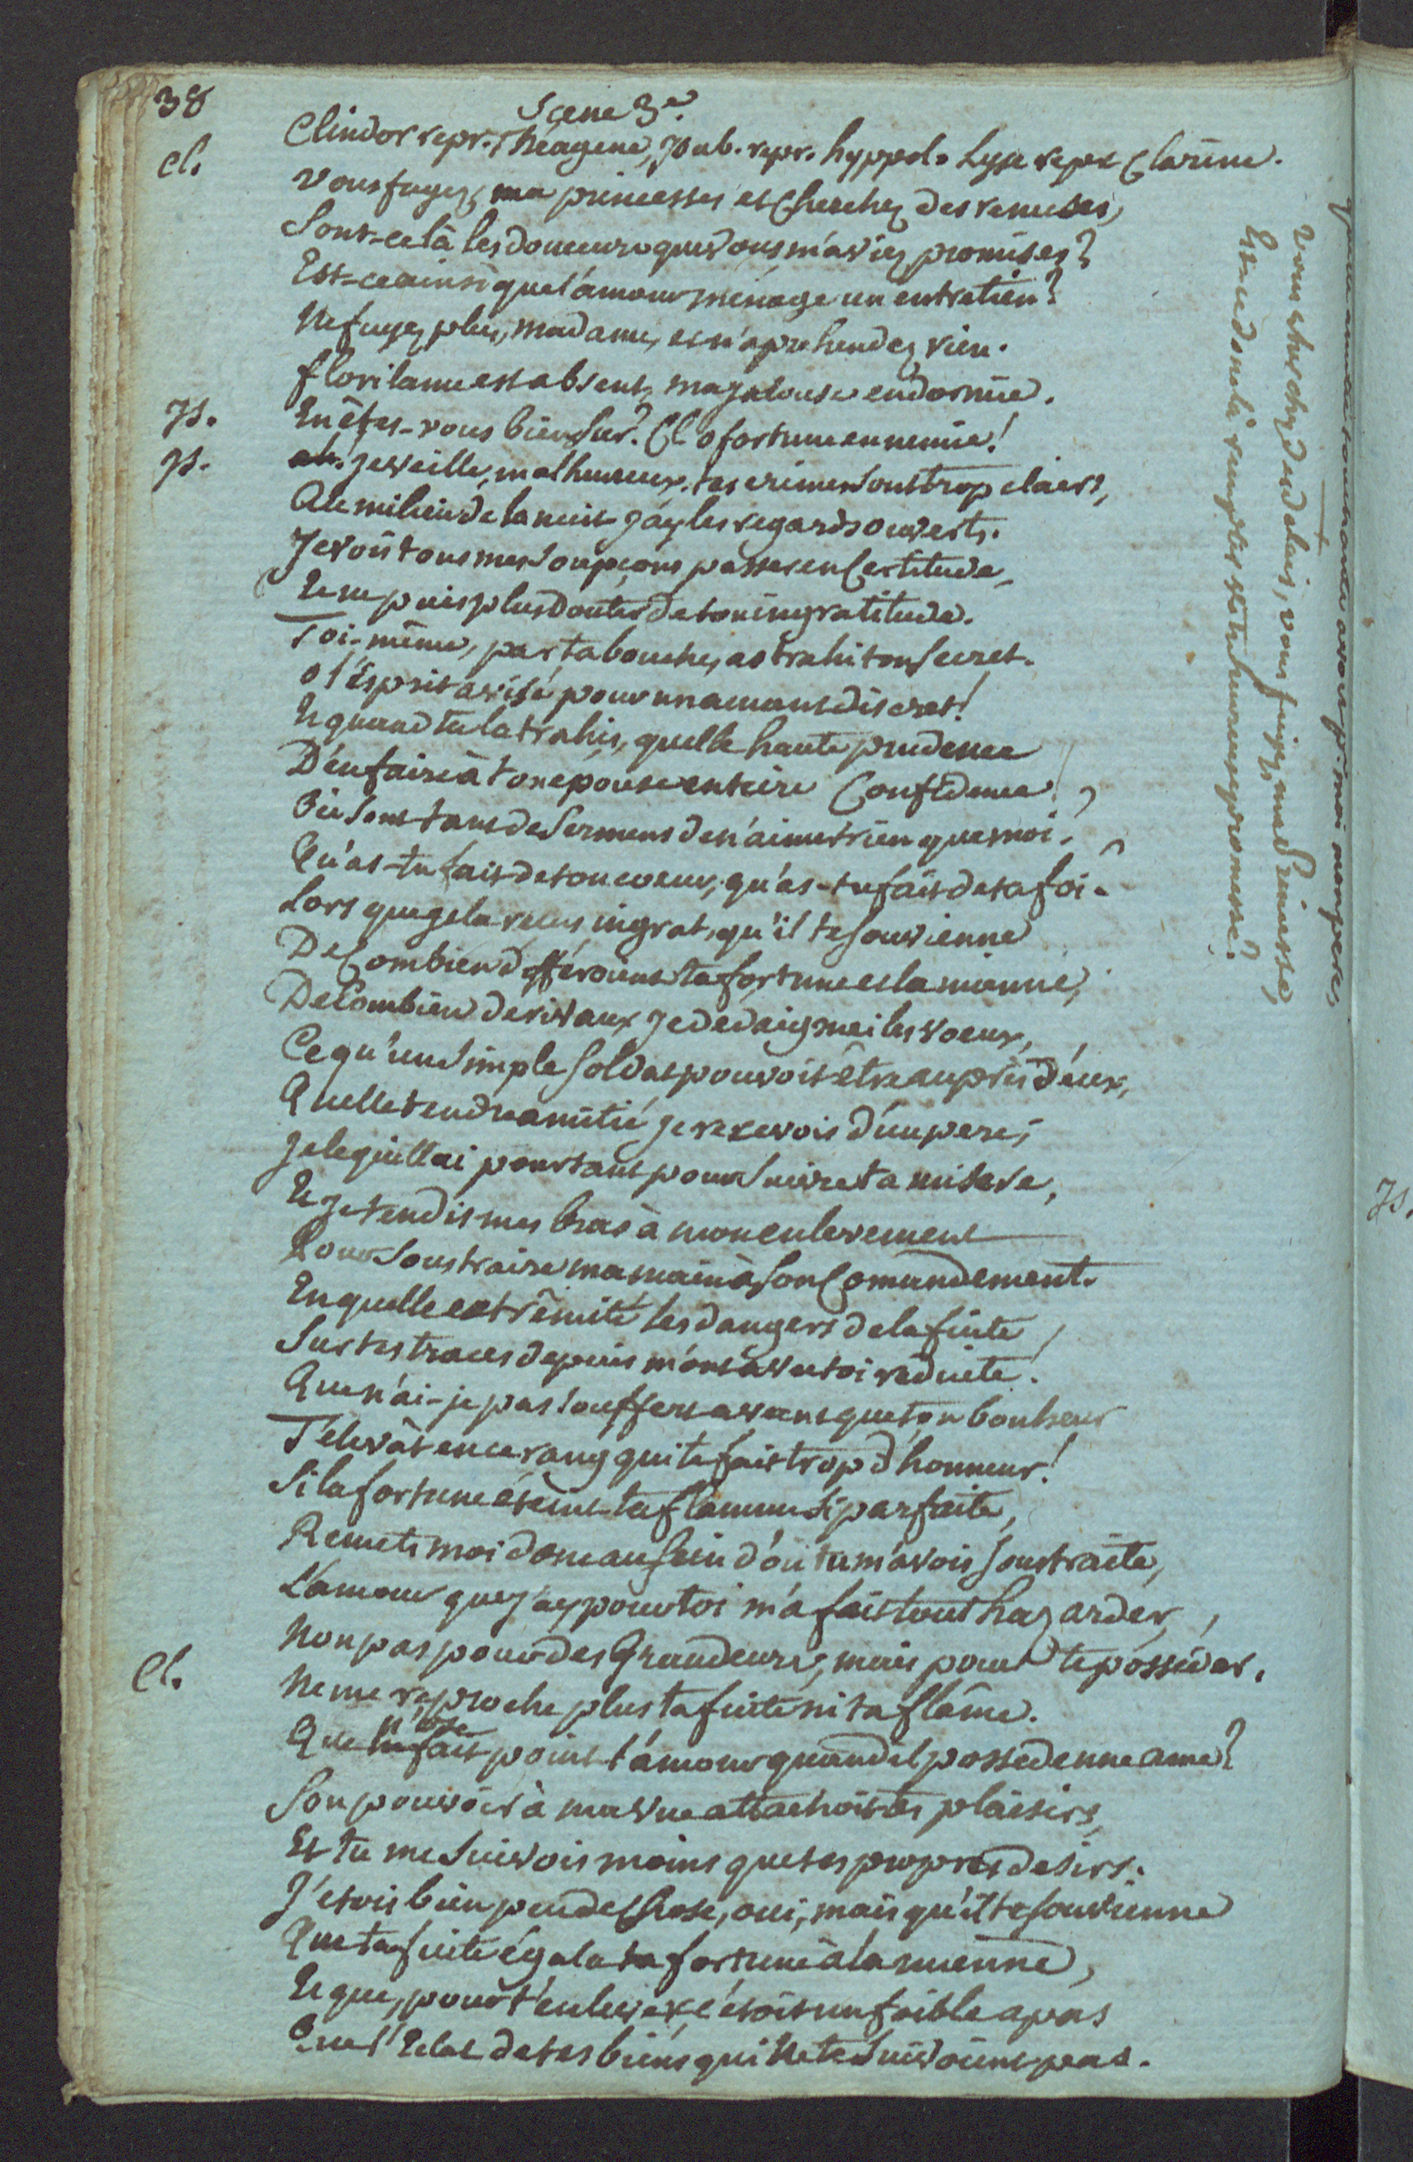 38
Scene 3e.
Clindor repr. Théagene, Isab. repr. hyppol. Lyse repr Clarine.
Cl. Vous fuyez, ma princesse, et cherchez des remises,
Sont-ce là les douceurs que vous m'aviez promises?
Est-ce ainsi que l'amour ménage un entretien?
Ne fuyez plus, madame, et n'aprehendez rien.
florilame est absent, ma jalouse endormie.
Is. En êtes-vous bien sur? Cl. o fortune ennemie!
Is. je veille, malheureux. tes crimes sont trop clairs,
Au milieu de la nuit j'ay les regards ouverts.
Je vois tous mes soupçons passer en Certitude,
Et ne puis plus douter de ton ingratitude.
Toi-même, par ta bouche, as trahi ton secret.
o l'Esprit avisé pour un amant discret!
Et quand tu la trahis, quelle haute prudence
D'en faire à ton épouse entiere Confidence!
Où sont tant de sermens de n'aimer rien que moi?
Qu'as-tu fait de ton coeur, qu'as-tu fait de ta foi?
Lors que je la reçus ingrat, qu'il te souvienne
De Combien differoient ta fortune et la mienne,
De Combien de rivaux je dedaignai les voeux,
Ce qu'un simple soldat pouvoit être auprès d'eux,
Quelle tendre amitié je recevois d'un pere;
Je le quittai pourtant pour suivre ta misere,
Et je tendis mes bras à mon enlevement
Pour soustraire ma main à son Comandement.
En quelle extrêmité les dangers de la fuite
Sur tes traces depuis m'ont avec toi reduite!
Que n'ai-je pas souffert avant que ton bonheur
T'élevât en ce rang qui te fait trop d'honneur!
Si la fortune éteint ta flamme si parfaite,
Remets moi donc au sein d'où tu m'avois soustraite,
L'amour que j'ay pour toi m'a fait tout hazarder,
Non pas pour des Grandeurs, mais pour te posséder.
Cl. Ne me reproche plus ta fuite ni ta flâme.
Que n'ose point l'amour quand il possede une ame?
Son pouvoir à ma vue attachoit tes plaisirs,
Et tu me suivois moins que tes propres desirs.
J'étois bien peu de Chose, oui, mais qu'il te souvienne
Que ta fuite égala ta fortune à la mienne,
Et que, pour t'enlever c'étoit un foible apas
Que l'Eclat de tes biens qui ne te suivoient pas.
vous cherchez des delais, vous fuyez, ma Princesse,
Est-ce donc là remplir votre heureuse promesse?
Is.